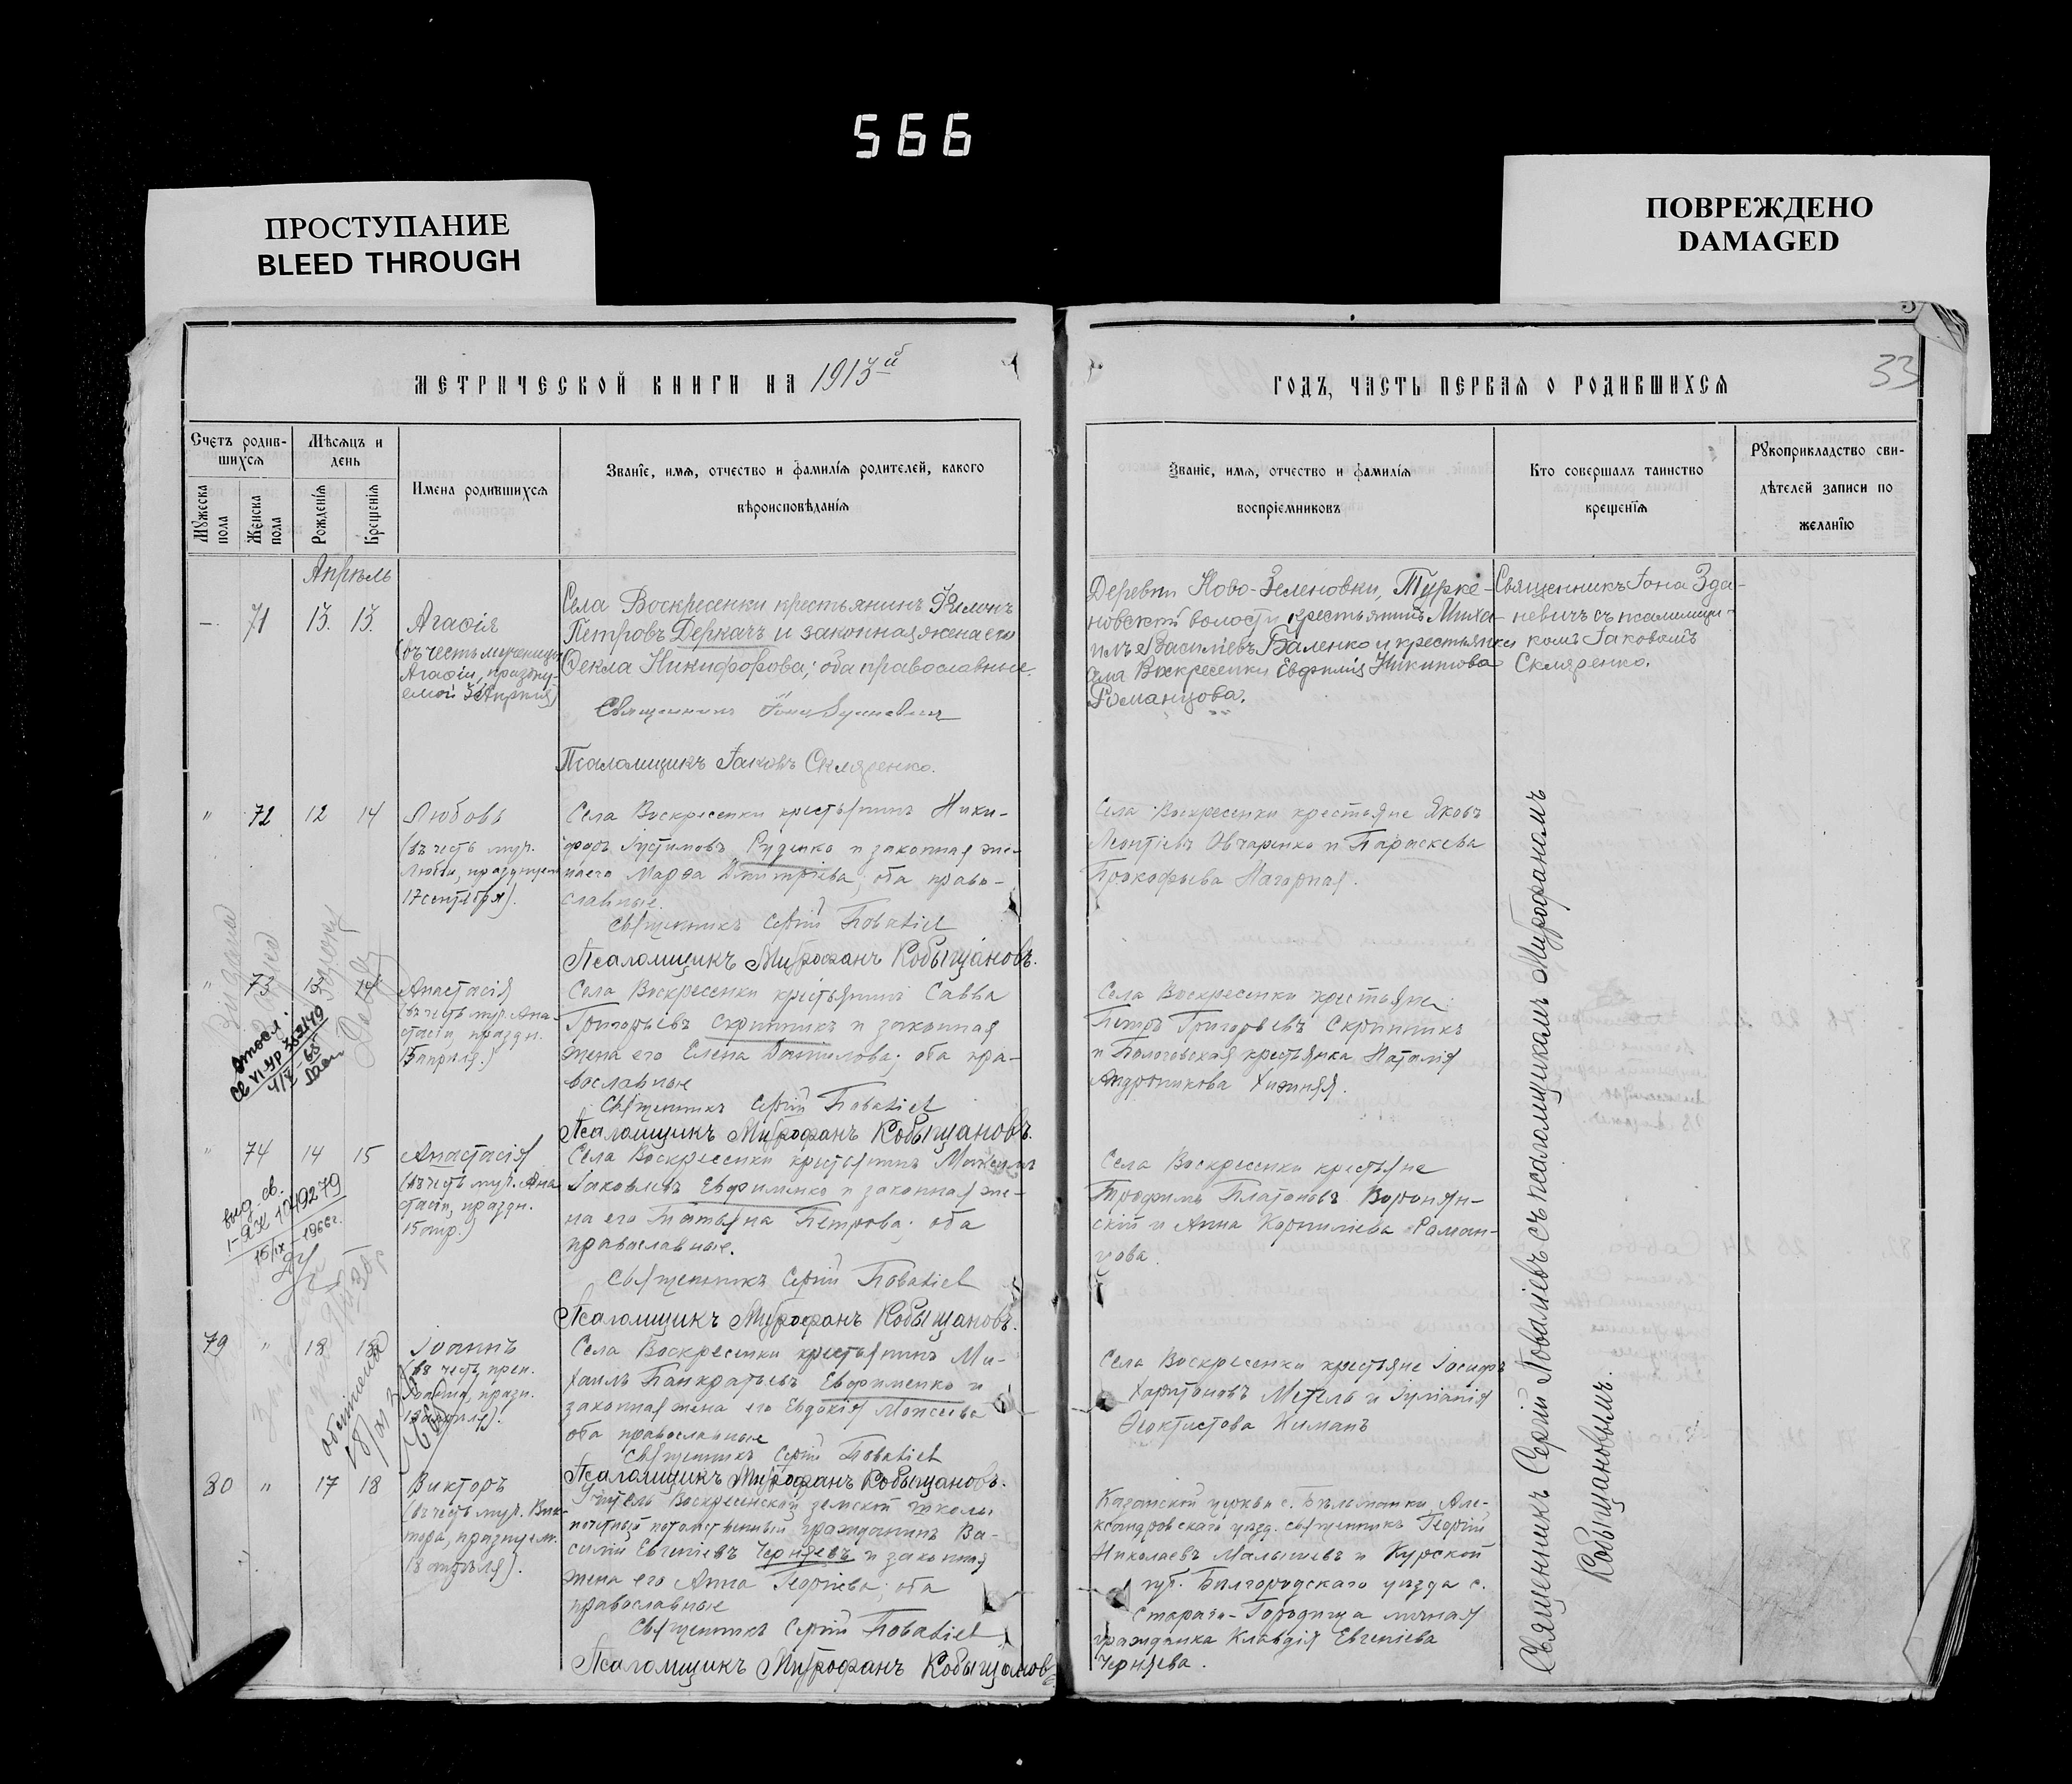 566
ПРОСТУПАНИЕ
BLEED THROUGH
ПОВРЕЖДЕНО
DAMAGED
33
МЕТРИЧЕСКОЙ КНИГИ НА 1913й
ГОДЪ, ЧАСТЬ ПЕРВАЯ О РОДИВШИХСЯ
Счетъ родив-
шихся
Мѣсяцъ и
день
Имена родившихся
Званіе, имя, отчество и фамилія родителей, какого
вѣроисповѣданія
Мужеска пола
Женска пола
Рожденія
Крещенія
Званіе, имя, отчество и фамилія
воспріемниковъ
Кто совершалъ таинство
крещенія
Рукоприкладство сви-
дѣтелей записи по
желанію
Апрѣль
71 13. 13.
Агафія
(въ честь мученицы
Агафіи, праздну-
емой
Села Воскресенки крестьянинъ Филонъ
Петровъ Деркачъ и законная жена его
Фекла Никифорова; оба православные.
Священникъ Іона
Псаломщикъ Іаковъ Скляренко.
Деревни Ново-Зеленовки, Турке-
новской волости крестьянинъ Миха-
илъ Василіевъ Баленко и крестьянка
села Воскресенки Евфимія Никитова
Романцова.
Священникъ Іона Зда-
невичъ съ псаломщи-
комъ Іаковомъ
Скляренко.
" 72 12 14
Любовь
(въ честь муч.
Любви, празднуем
17 сентября).
Села Воскресенки крестьянинъ Ники-
форъ Іустиновъ Руденко и законная же-
на его Марѳа Димитріева; оба право-
славные.
Священникъ Сергій Поваліевъ
Псаломщикъ Митрофанъ Кобыщановъ.
Села Воскресенки крестьяне Яковъ
Леонтіевъ Овчаренко и Параскева
Прокофьева Нагорная.
" 73 13 14
Анастасія
(въ честь муч. Ана-
стасіи, праздн.
15 апрѣля.)
Села Воскресенки крестьянинъ Савва
Григорьевъ Скрипникъ и законная
жена его Елена Даниилова; оба пра-
вославные
Священникъ Сергій Поваліевъ
Псаломщикъ Митрофанъ Кобыщановъ.
Села Воскресенки крестьяне:
Петръ Григорьевъ Скрипникъ
и Пологовская крестьянка Наталія
Андроникова Хижняя.
" 74 14 15
Анастасія
(въ честь муч. Ана
стасіи, праздн.
15 апр.)
Села Воскресенки крестьянинъ Максимъ
Іаковлевъ Евфименко и законная же-
на его Татьяна Петрова; оба
православные.
Священникъ Сергій Поваліевъ
Псаломщикъ Митрофанъ Кобыщановъ.
Села Воскресенки крестьяне
Трофимъ Платоновъ Воронян-
скій и Анна Корниліева Роман-
цова.
выд. св.
1-ЯЖ 1749279
15/IX-1966г.
79 " 18 18
Іоаннъ
(въ честь преп.
Іоанна, празн.
18 апрѣля).
Села Воскресенки крестьянинъ Ми-
хаилъ Панкратьевъ Евфименко и
законная жена его Евдокія Моисеева
оба православные
Священникъ Сергій Поваліевъ
Псаломщикъ Митрофанъ Кобыщановъ.
Села Воскресенки крестьяне Іосифъ
Харитоновъ Метель и Іуліанія
Ѳеоктистова Киманъ
80 " 17 18
Викторъ
(въ честь муч. Вик-
тора, празнуем.
18 апрѣля).
Учитель Воскресенской земской школы
почетный потомственный гражданинъ Ва-
силій Евгеніевъ Черняевъ и законная
жена его Анна Георгіева; оба
православные
Священникъ Сергій Поваліевъ
Псаломщикъ Митрофанъ Кобыщановъ
Казанской церкви с. Бѣльманки Але-
ксандровскаго уѣзд. священникъ Георгій
Николаевъ Малышевъ и Курской
губ. Бѣлгородскаго уѣзда с.
Стараго-Городища личная
гражданка Клавдія Евгеніева
Черняева.
Священникъ Сергій Поваліевъ съ псаломщикомъ Митрофаномъ
Кобыщановымъ.